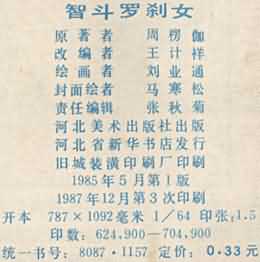 智斗罗刹女
原著者 周楞伽
改编者 王计祥
绘画者 刘业通
封面绘者 马寒松
责任编辑 张秋菊
河北美术出版社出版
河北省新华书店发行
旧城装潢印刷厂印刷
1985年5月第1版
1987年12月第3次印刷
开本 787×1092毫米 1/64 印张:1.5
印数:624,900—704,900
统一书号:8087·1157 定价:0.33元